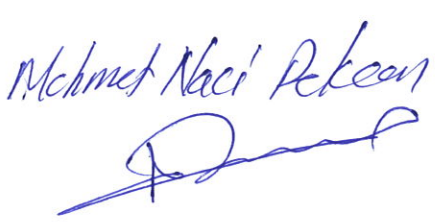 Mehmet Naci Pekcan